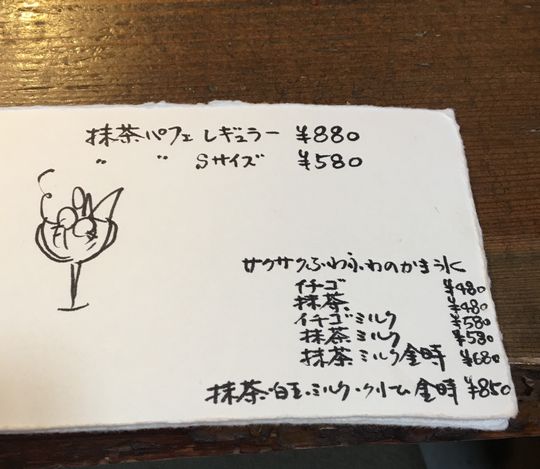 抹茶パフェ レギュラー ¥880
〃 〃 Sサイズ ¥580
サクサクふわふわのかき氷
イチゴ ¥480
抹茶 ¥480
イチゴミルク ¥580
抹茶ミルク ¥580
抹茶ミルク金時 ¥680
抹茶・白玉・ミルク・クリーム金時 ¥850